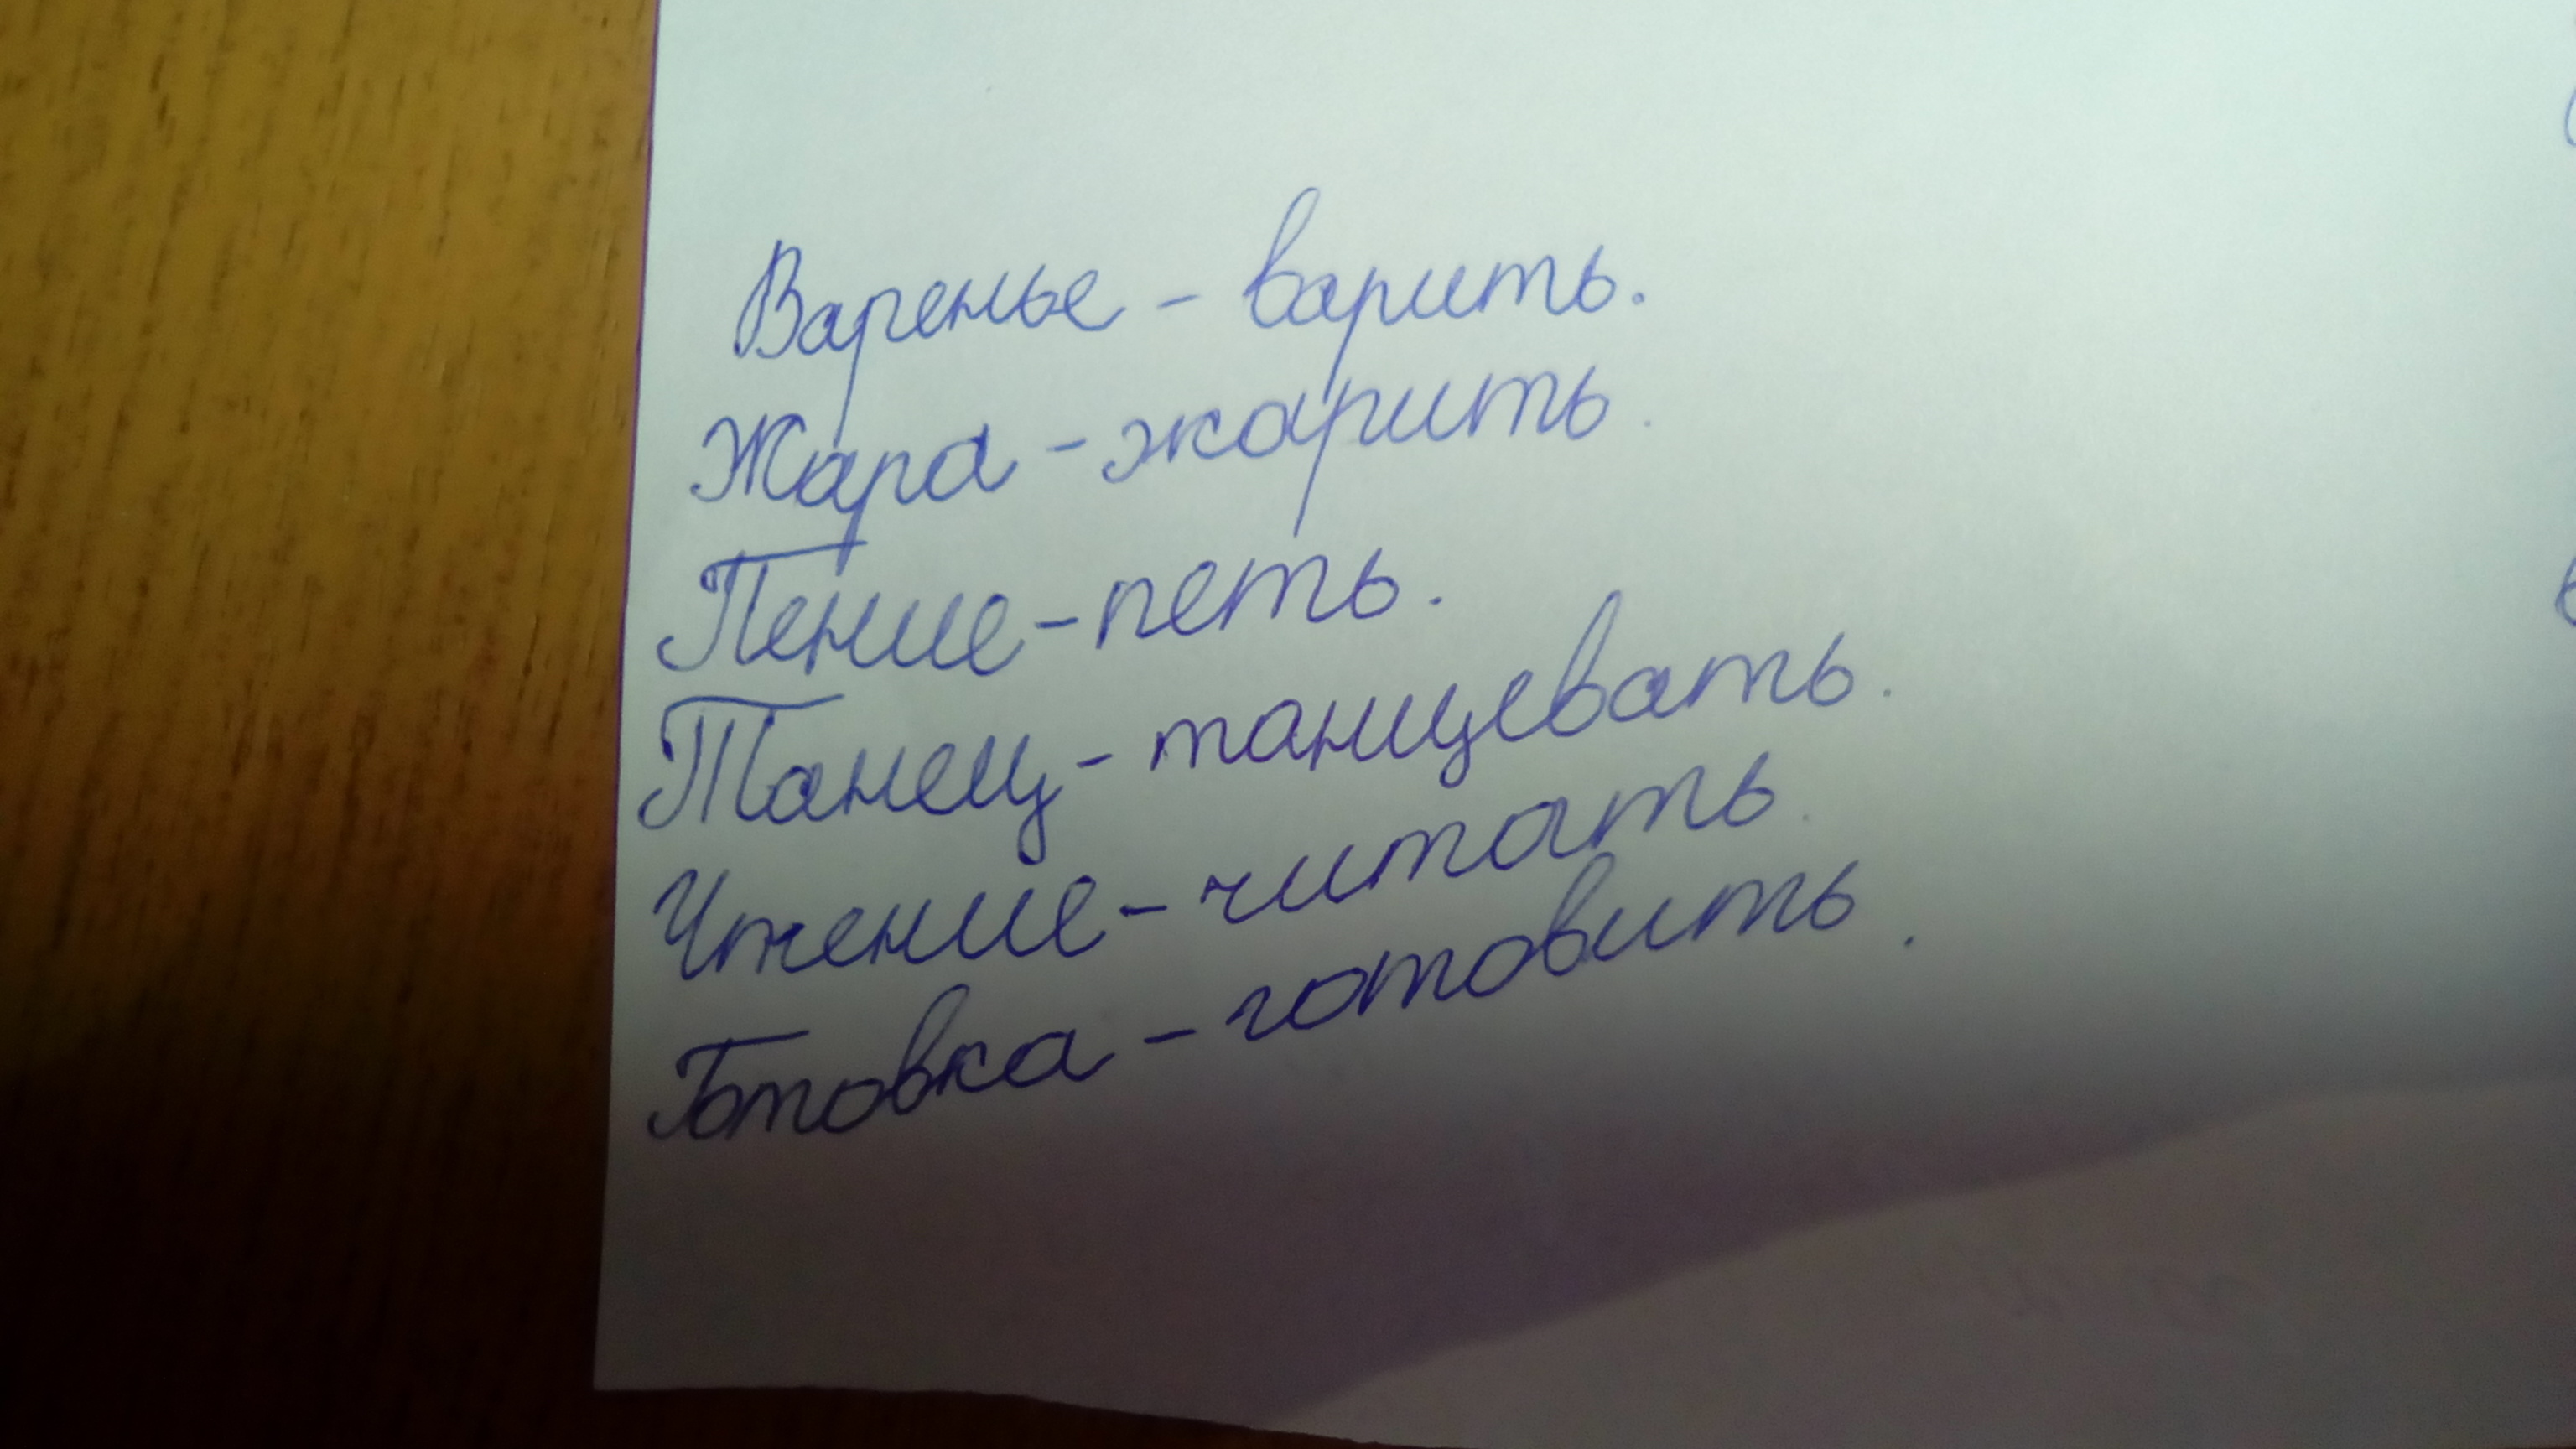 Варенье - варить.
Жара - жарить.
Пение - петь.
Танец - танцевать.
Чтение - читать.
Готовка - готовить.